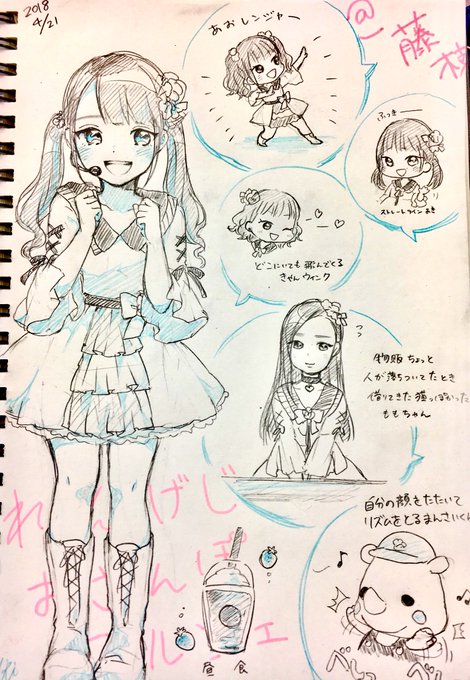 2018
4/21
@藤
あおレンジャー
ふっきー
ストレートラインあき
どこにいても飛んでくる
きゃんウィンク
物販ちょっと
人が落ちついてたとき
借りてきた猫っぽかった
ももちゃん
自分の顔をたたいて
リズムをとるまんさいくん
れんげじ
おさんぽ
マルシェ
昼食
べしっ
べしっ